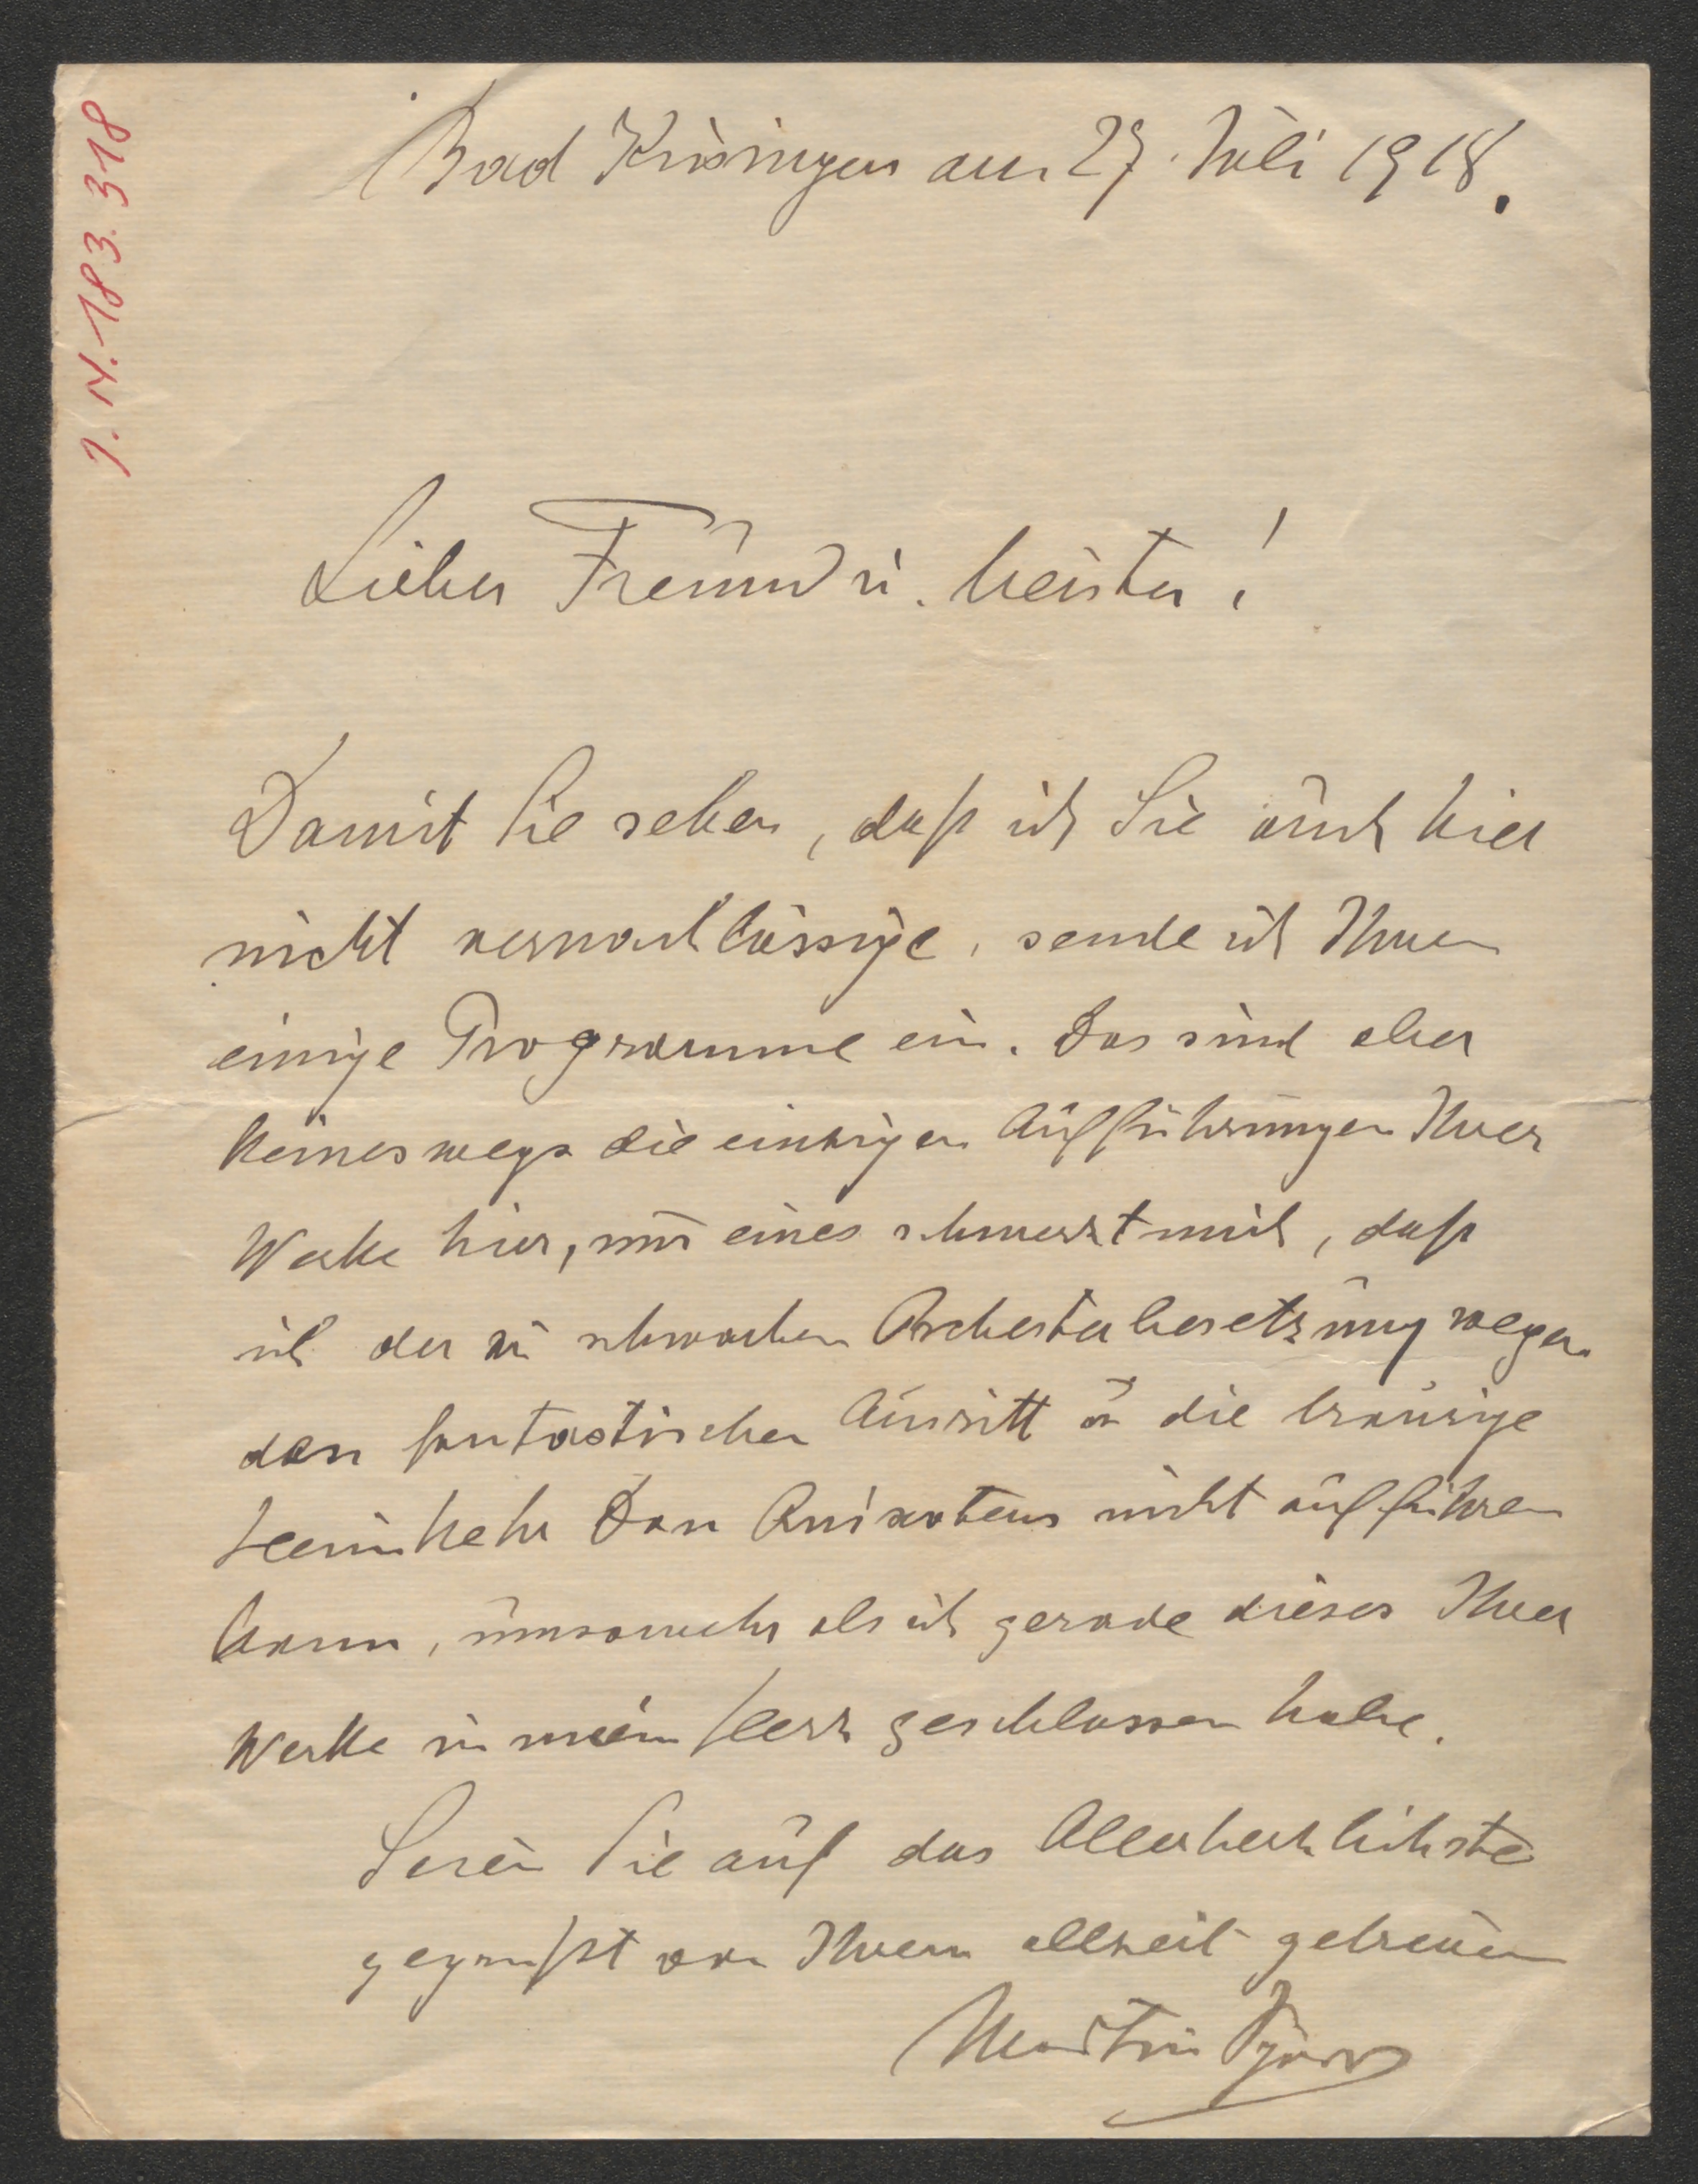 J. N. 183.318
Bad Kissingen am 27. Juli 1918.
Lieber Freund u. Meister!
Damit Sie sehen, daß ich Sie auch hier
nicht vernachlässige, sende ich Ihnen
einige Programme ein. Das sind aber
keineswegs die einzigen Aufführungen Ihrer
Werke hier, nur eines schmerzt mich, daß
ich der zu schwachen Orchesterbesetzung wegen
den fantastischen Ausritt u die traurige
Heimkehr Don Quixotens nicht aufführen
kann, umsomehr als ich gerade dieses Ihrer
Werke in mein Herz geschlossen habe.
Seien Sie auf das Allerherzlichste
gegrüßt von Ihrem allzeit getreuen
Martin Spörr